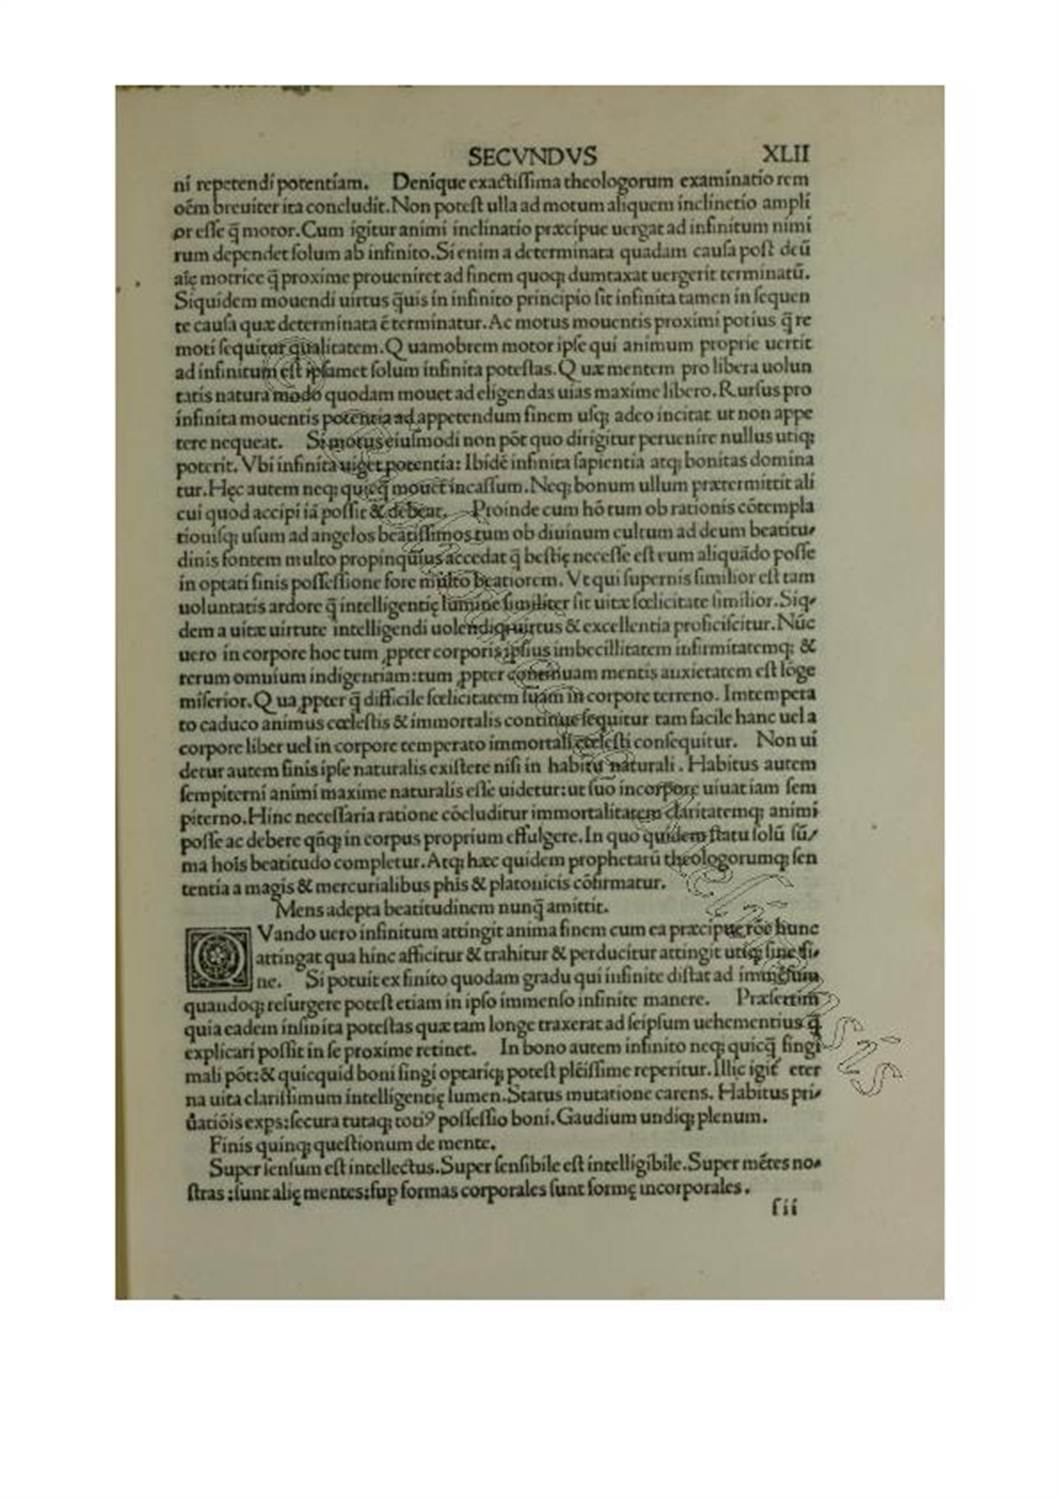 SECVNDVS XLII
ni repetendi potentiam. Denique exactissima theologorum examinatio rem
oēm breuiter ita concludit. Non potest ulla ad motum aliquem inclinetio ampli
or esse q̄ motor. Cum igitur animi inclinatio præcipue uergat ad infinitum nimi
rum dependet solum ab infinito. Si enim a determinata quadam causa post deū
aīę motrice q̄ proxime proueniret ad finem quoq; dumtaxat uergerit terminatū.
Siquidem mouendi uirtus q̄uis in infinito principio sit infinita tamen in sequen
te causa quæ determinata ē terminatur. Ac motus mouentis proximi potius q̄ re
moti sequitur qualitatem. Q uamobrem motor ipse qui animum proprie uertit
ad infinitum est ipsamet solum infinita potestas. Q uæ mentem pro libera uolun
tatis natura modo quodam mouet ad eligendas uias maxime libero. Rursus pro
infinita mouentis potentia ad appetendum finem usq; adeo incitat ut non appe
tere nequeat. Si motus eiusmodi non pōt quo dirigitur peruenire nullus utiq;
poterit. Vbi infinita uiget potentia: Ibidē infinita sapientia atq; bonitas domina
tur. Hęc autem neq; quicq̄ mouet incassum. Neq; bonum ullum prætermittit ali
cui quod accipi iā possit & debeat. Proinde cum hō tum ob rationis cōtempla
tionisq; usum ad angelos beatissimos tum ob diuinum cultum ad deum beatitu-
dinis fontem multo propinquius accedat q̄ bestię necesse est eum aliquādo posse
in optati finis possessione fore multo beatiorem. Vt qui supernis similior est tam
uoluntatis ardore q̄ intelligentię lumine similiter sit uitæ fœlicitate similior. Siq-
dem a uitæ uirtute intelligendi uolendiq; uirtus & excellentia proficiscitur. Nūc
uero in corpore hoc tum ꝓpter corporis ipsius imbecillitatem infirmitatemq; &
rerum omnium indigentiam: tum ꝓpter continuam mentis anxietatem est lōge
miserior. Q uaꝓpter q̄ difficile fœlicitatem suam in corpore terreno. Imtempera
to caduco animus cœlestis & immortalis continue sequitur tam facile hanc uel a
corpore liber uel in corpore temperato immortali cœlesti consequitur. Non ui
detur autem finis ipse naturalis existere nisi in habitu naturali. Habitus autem
sempiterni animi maxime naturalis esse uidetur: ut suo incorpore uiuat iam sem
piterno. Hinc necessaria ratione cōcluditur immortalitatem claritatemq; animi
posse ac debere qñq; in corpus proprium effulgere. In quo quidem statu solū sū-
ma hoīs beatitudo completur. Atq; hæc quidem prophetarū theologorumq; sen
tentia a magis & mercurialibus phis & platonicis cōfirmatur.
Mens adepta beatitudinem nunq̄ amittit.
QVando uero infinitum attingit anima finem cum ea præcipue rōe hunc
attingat qua hinc afficitur & trahitur & perducitur attingit utiq; sine fi-
ne. Si potuit ex finito quodam gradu qui infinite distat ad immensum
quandoq; resurgere potest etiam in ipso immenso infinite manere. Præsertim
quia eadem infinita potestas quæ tam longe traxerat ad seipsum uehementius q̄
explicari possit in se proxime retinet. In bono autem infinito neq; quicq̄ fingi
mali pōt: & quicquid boni fingi optariq; potest plēissime reperitur. Illic igit eter
na uita clarissimum intelligentię lumen. Status mutatione carens. Habitus pri-
uatiōis exps: secura tutaq; toti⁹ possessio boni. Gaudium undiq; plenum.
Finis quinq; questionum de mente.
Super sensum est intellectus. Super sensibile est intelligibile. Super mētes no-
stras: sunt alię mentes: sup formas corporales sunt formę incorporales.
fii